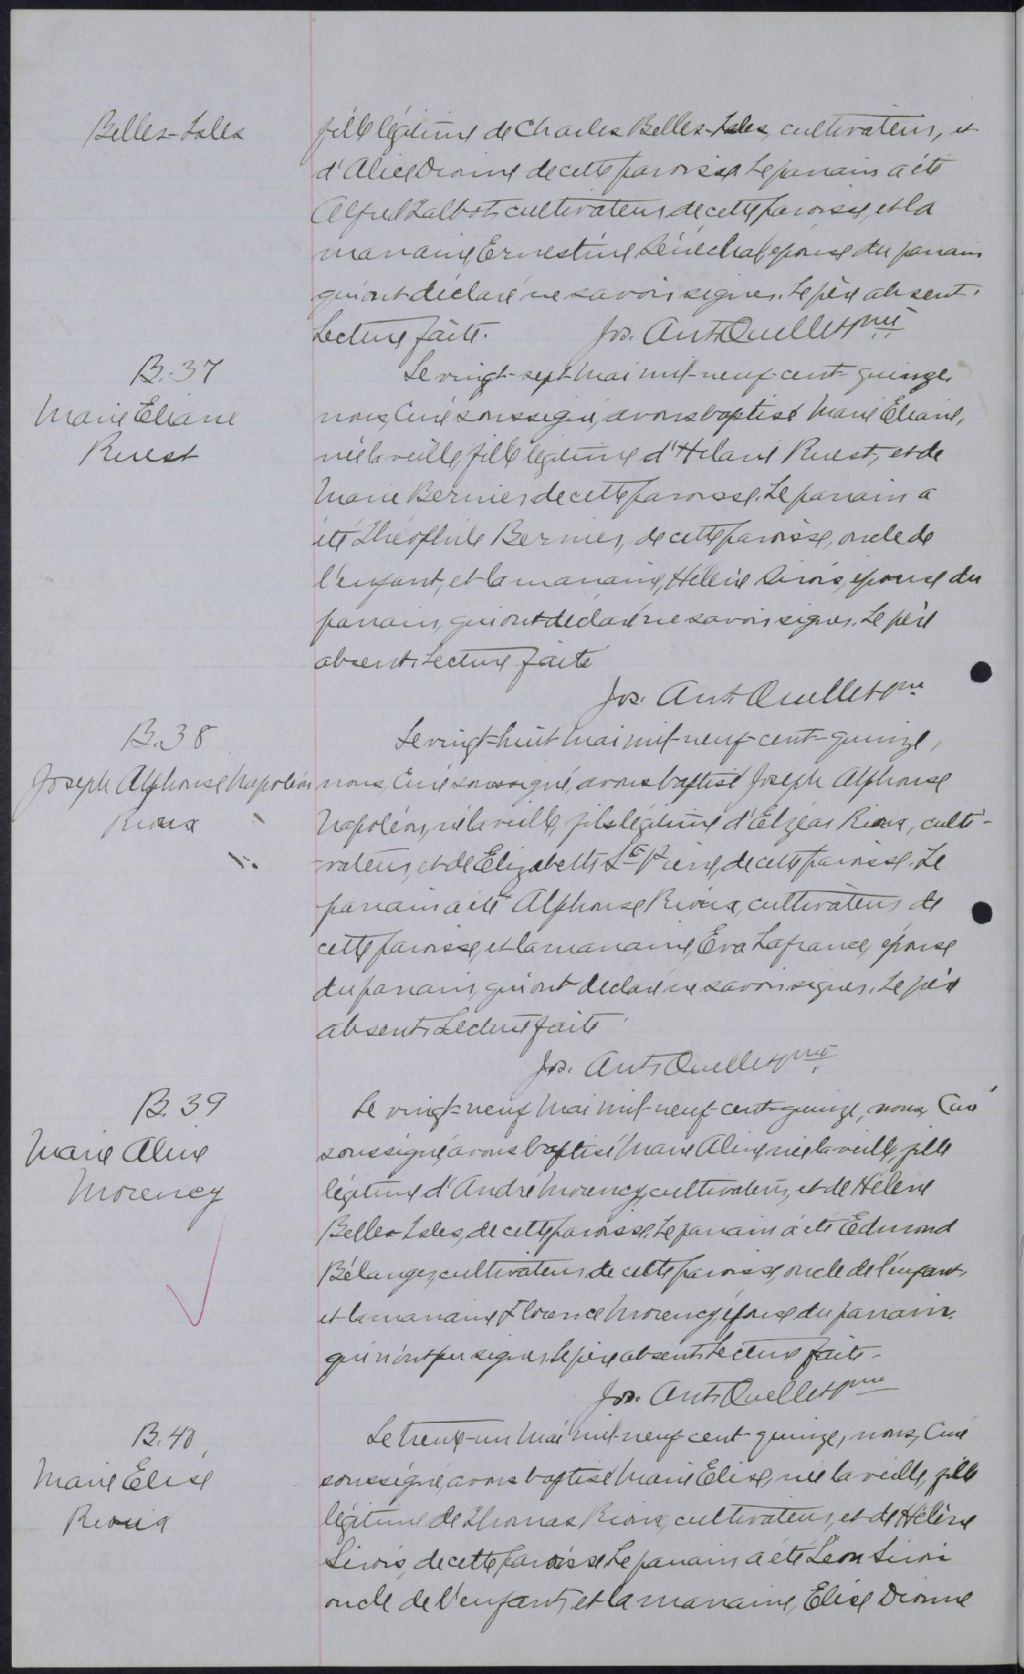 Belles-Isles
fille légitime de Charles Belles-Isles, cultivateur, et
d'Alice Dionne de cette paroisse. Le parrain a été
Alfred Talbot, cultivateur, de cette paroisse, et la
marraine Ernestine Sénéchal, épouse du parrain
qui ont déclaré ne savoir signer. Le père absent.
Lecture faite. Jos. Ant. Ouellet ptre
B. 37
Marie Eliane
Ruest
Le vingt-sept Mai mil-neuf-cent-quinze,
nous, Curé soussigné, avons baptisé Marie Éliane,
née la veille, fille légitime d'Hilaire Ruest, et de
Marie Bernier de cette paroisse. Le parrain a
été Théophile Bernier, de cette paroisse, oncle de
l'enfant, et la marraine, Hélène Sirois, épouse du
parrain, qui ont déclaré ne savoir signer. Le père
absent. Lecture faite
Jos. Ant. Ouellet ptre
B. 38
Joseph Alphonse Napoléon
Rioux
Le vingt-huit Mai mil-neuf-cent-quinze,
nous, Curé soussigné, avons baptisé Joseph Alphonse
Napoléon, né la veille, fils légitime d'Elzéar Rioux, culti-
-vateur, et de Elizabeth St Pierre, de cette paroisse. Le
parrain a été Alphonse Rioux, cultivateur de
cette paroisse, et la marraine, Eva Lafrance, épouse
du parrain, qui ont déclaré ne savoir signer. Le père
absent. Lecture faite
Jos. Ant. Ouellet ptre
B. 39
Marie Aline
Morency
Le vingt-neuf Mai mil-neuf-cent-quinze, nous, Curé
soussigné, avons baptisé Marie Aline née la veille, fille
légitime d'André Morency, cultivateur, et de Hélène
Belles-Isles, de cette paroisse. Le parrain a été Edmond
Bélanger, cultivateur, de cette paroisse, oncle de l'enfant,
et la marraine Florence Morency, épouse du parrain,
qui n'ont pu signer. Le père absent. Lecture faite.
Jos. Ant. Ouellet ptre
B. 40
Marie Elise
Rioux
Le trente-un Mai mil-neuf-cent-quinze, nous, Curé
soussigné, avons baptisé Marie Elise, née la veille, fille
légitime de Thomas Rioux, cultivateur, et de Hélène
Sirois, de cette paroisse. Le parrain a été Léon Sirois
oncle de l'enfant, et la marraine, Elise Dionne